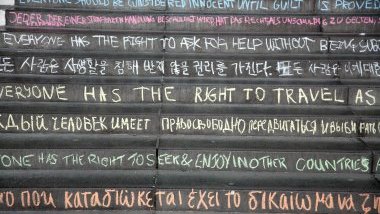 EVERYONE SHOULD BE CONSIDERED INNOCENT UNTIL GUILT IS PROVED
JEDER, DER EINER STRAFBAREN HANDLUNG BESCHULDIGT WIRD HAT DAS RECHT ALS UNSCHULDIG ZU GELTEN,
EVERYONE HAS THE RIGHT TO ASK FOR HELP WITHOUT BEING
모든 사람은 사생활을 침해 받지 않을 권리를 가진다. 모든 사람은
EVERYONE HAS THE RIGHT TO TRAVEL AS
КАЖДЫЙ ЧЕЛОВЕК ИМЕЕТ ПРАВО СВОБОДНО ПЕРЕДВИГАТЬСЯ И
ONE HAS THE RIGHT TO SEEK & ENJOY IN OTHER COUNTRIES
που καταδιώκεται έχει το δικαίωμα να